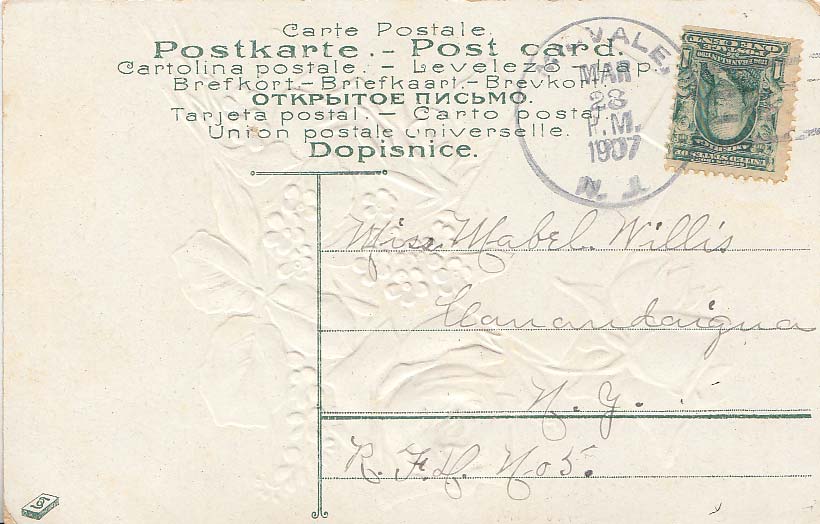 Carte Postale.
Postkarte. – Post card.
Cartolina postale. – Levelezö-lap.
Brefkort – Briefkaart – Brevkort
ОТКРЫТОЕ ПИСЬМО.
Tarjeta postal. – Carto postal.
Union postale universelle.
Dopisnice.
VALE,
MAR
28
P.M.
1907
N. J.
Miss. Mabel. Willis
Canandaigua
N. Y.
R. F. D. No 5.